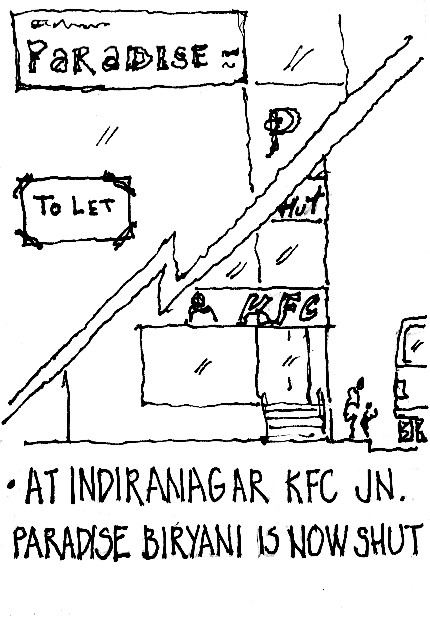 PARADISE
P
TO LET
HUT
KFC
• AT INDIRANAGAR KFC JN.
PARADISE BIRYANI IS NOW SHUT